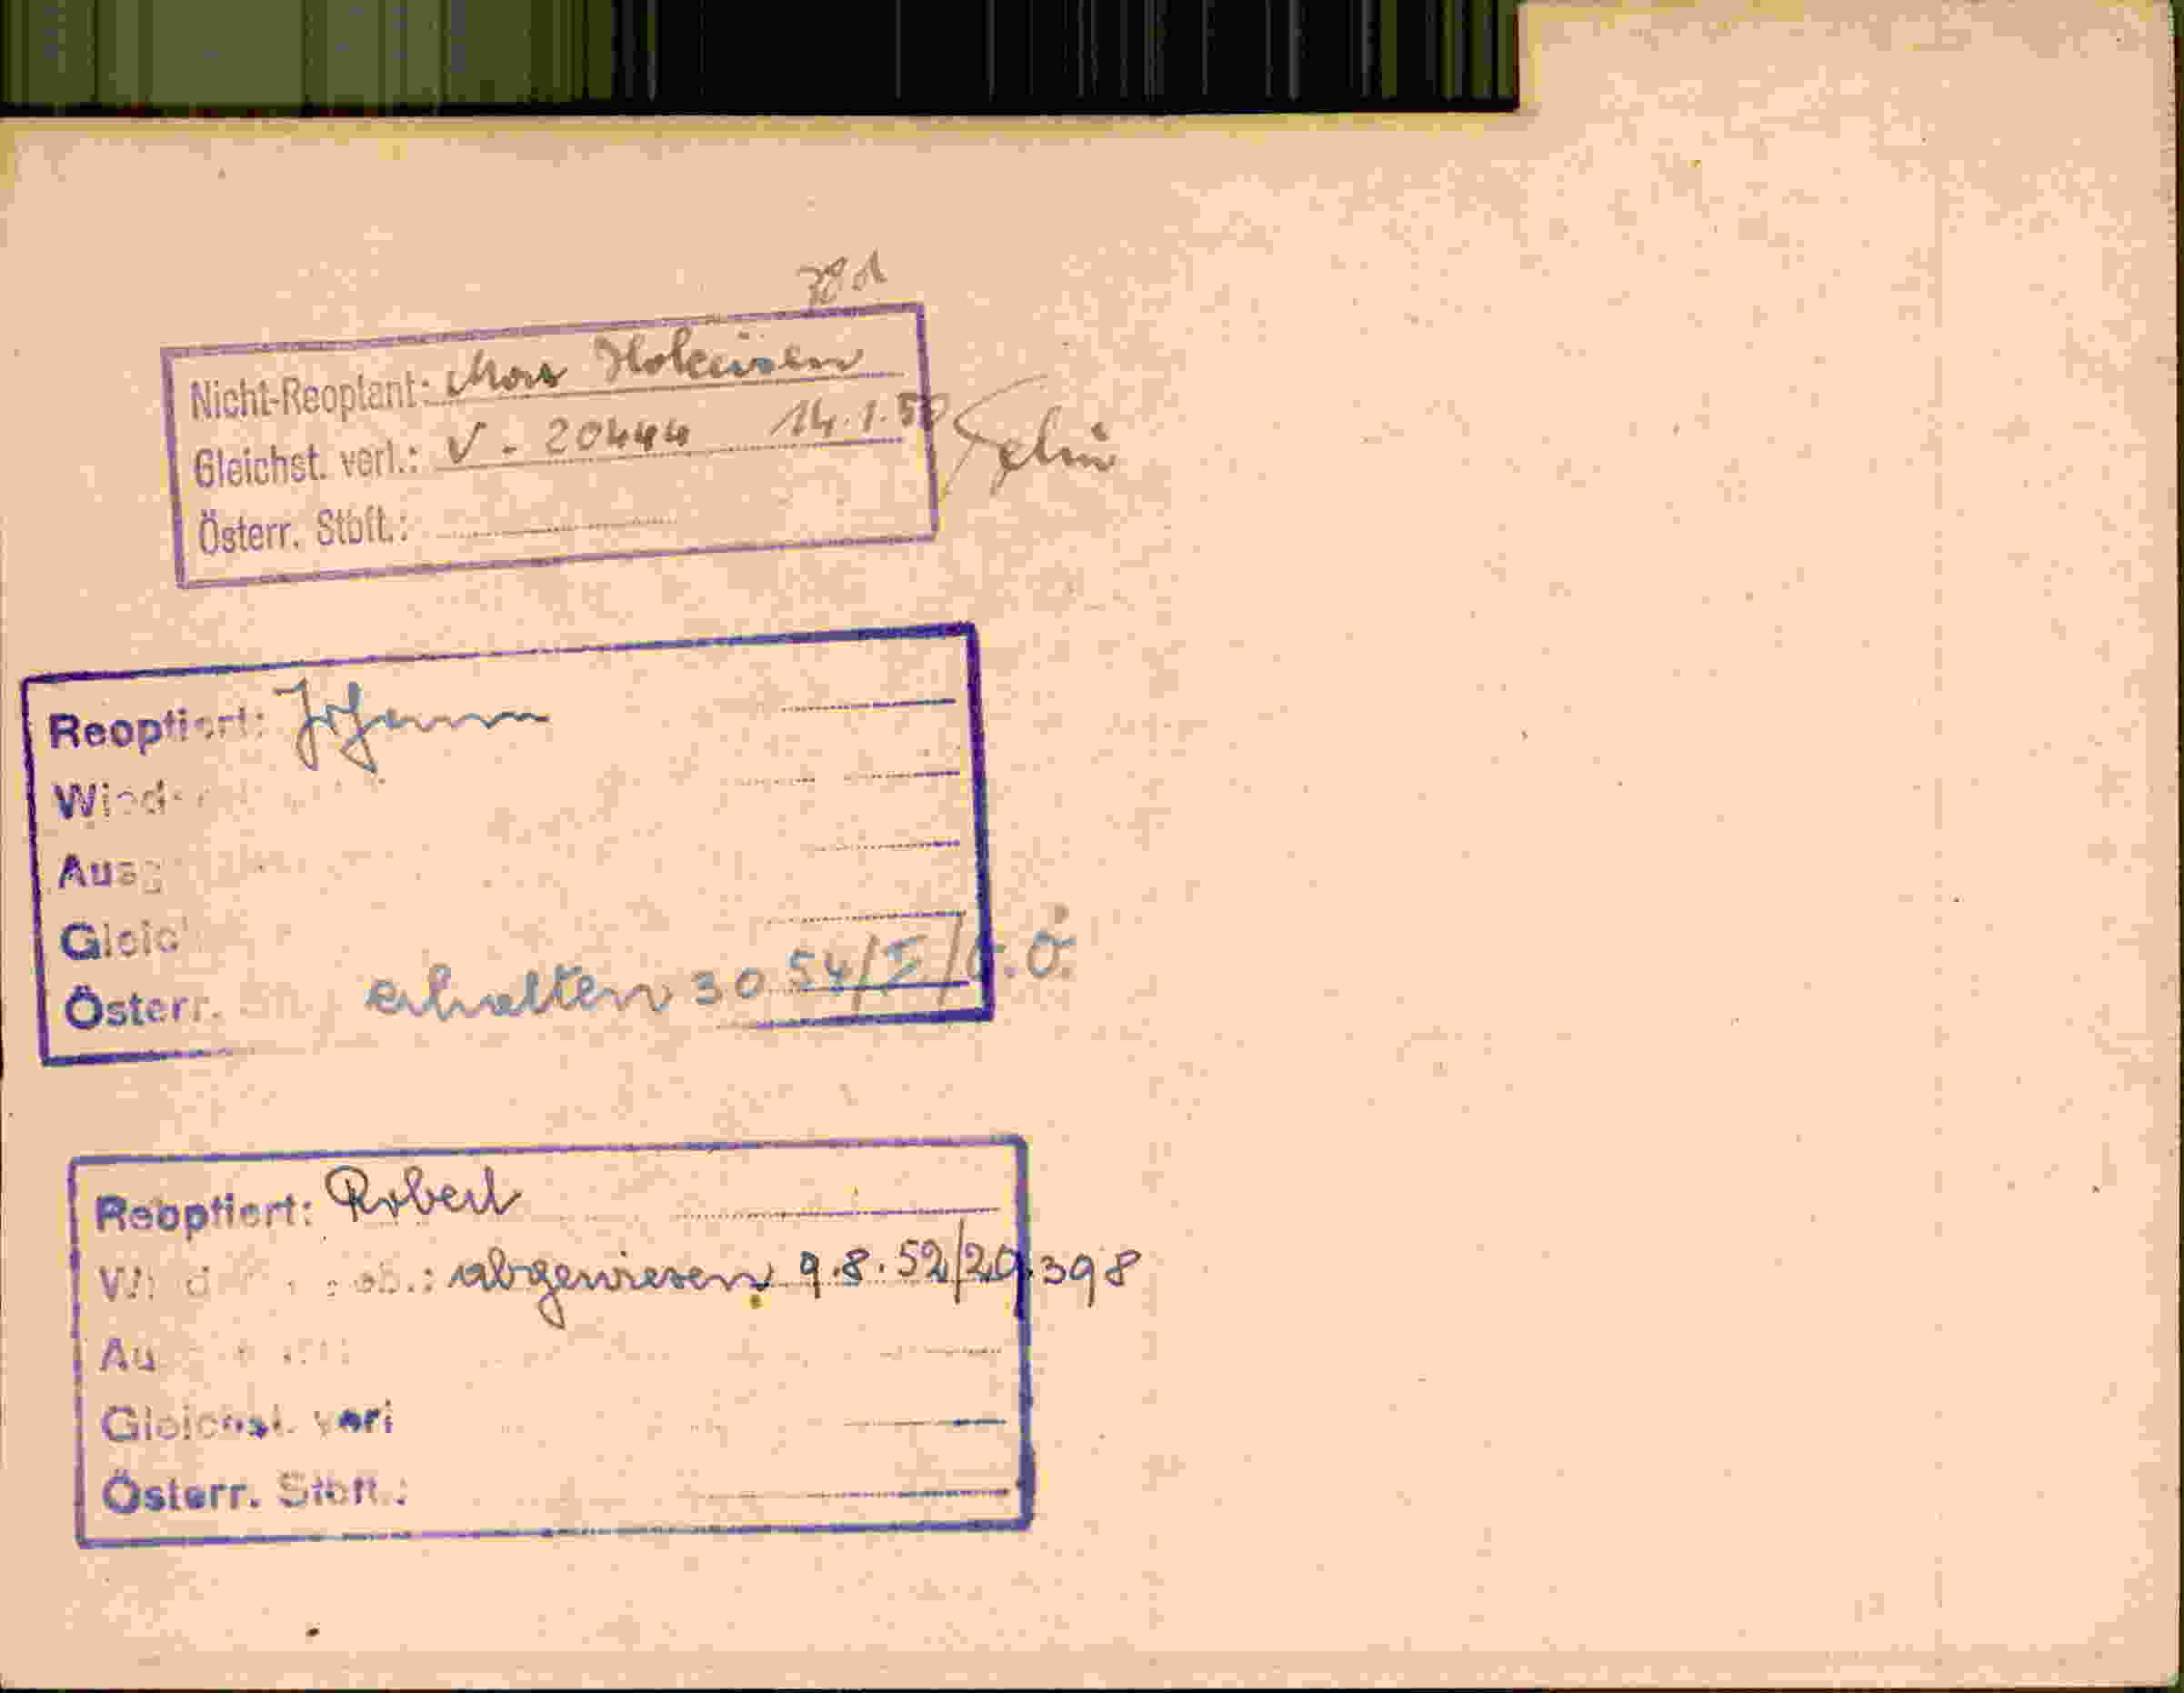 Nicht-Reoptant: Max Holeisen
Gleichst. verl.: V - 20444 14.1.50
Österr. Stbft.:
Reoptiert: Johann
Österr. erhalten 3054/I/O.Ö.
Reoptiert: Robert
abgewiesen 9.8.52/20.398
Gleichst. verl
Österr. Stbft.: